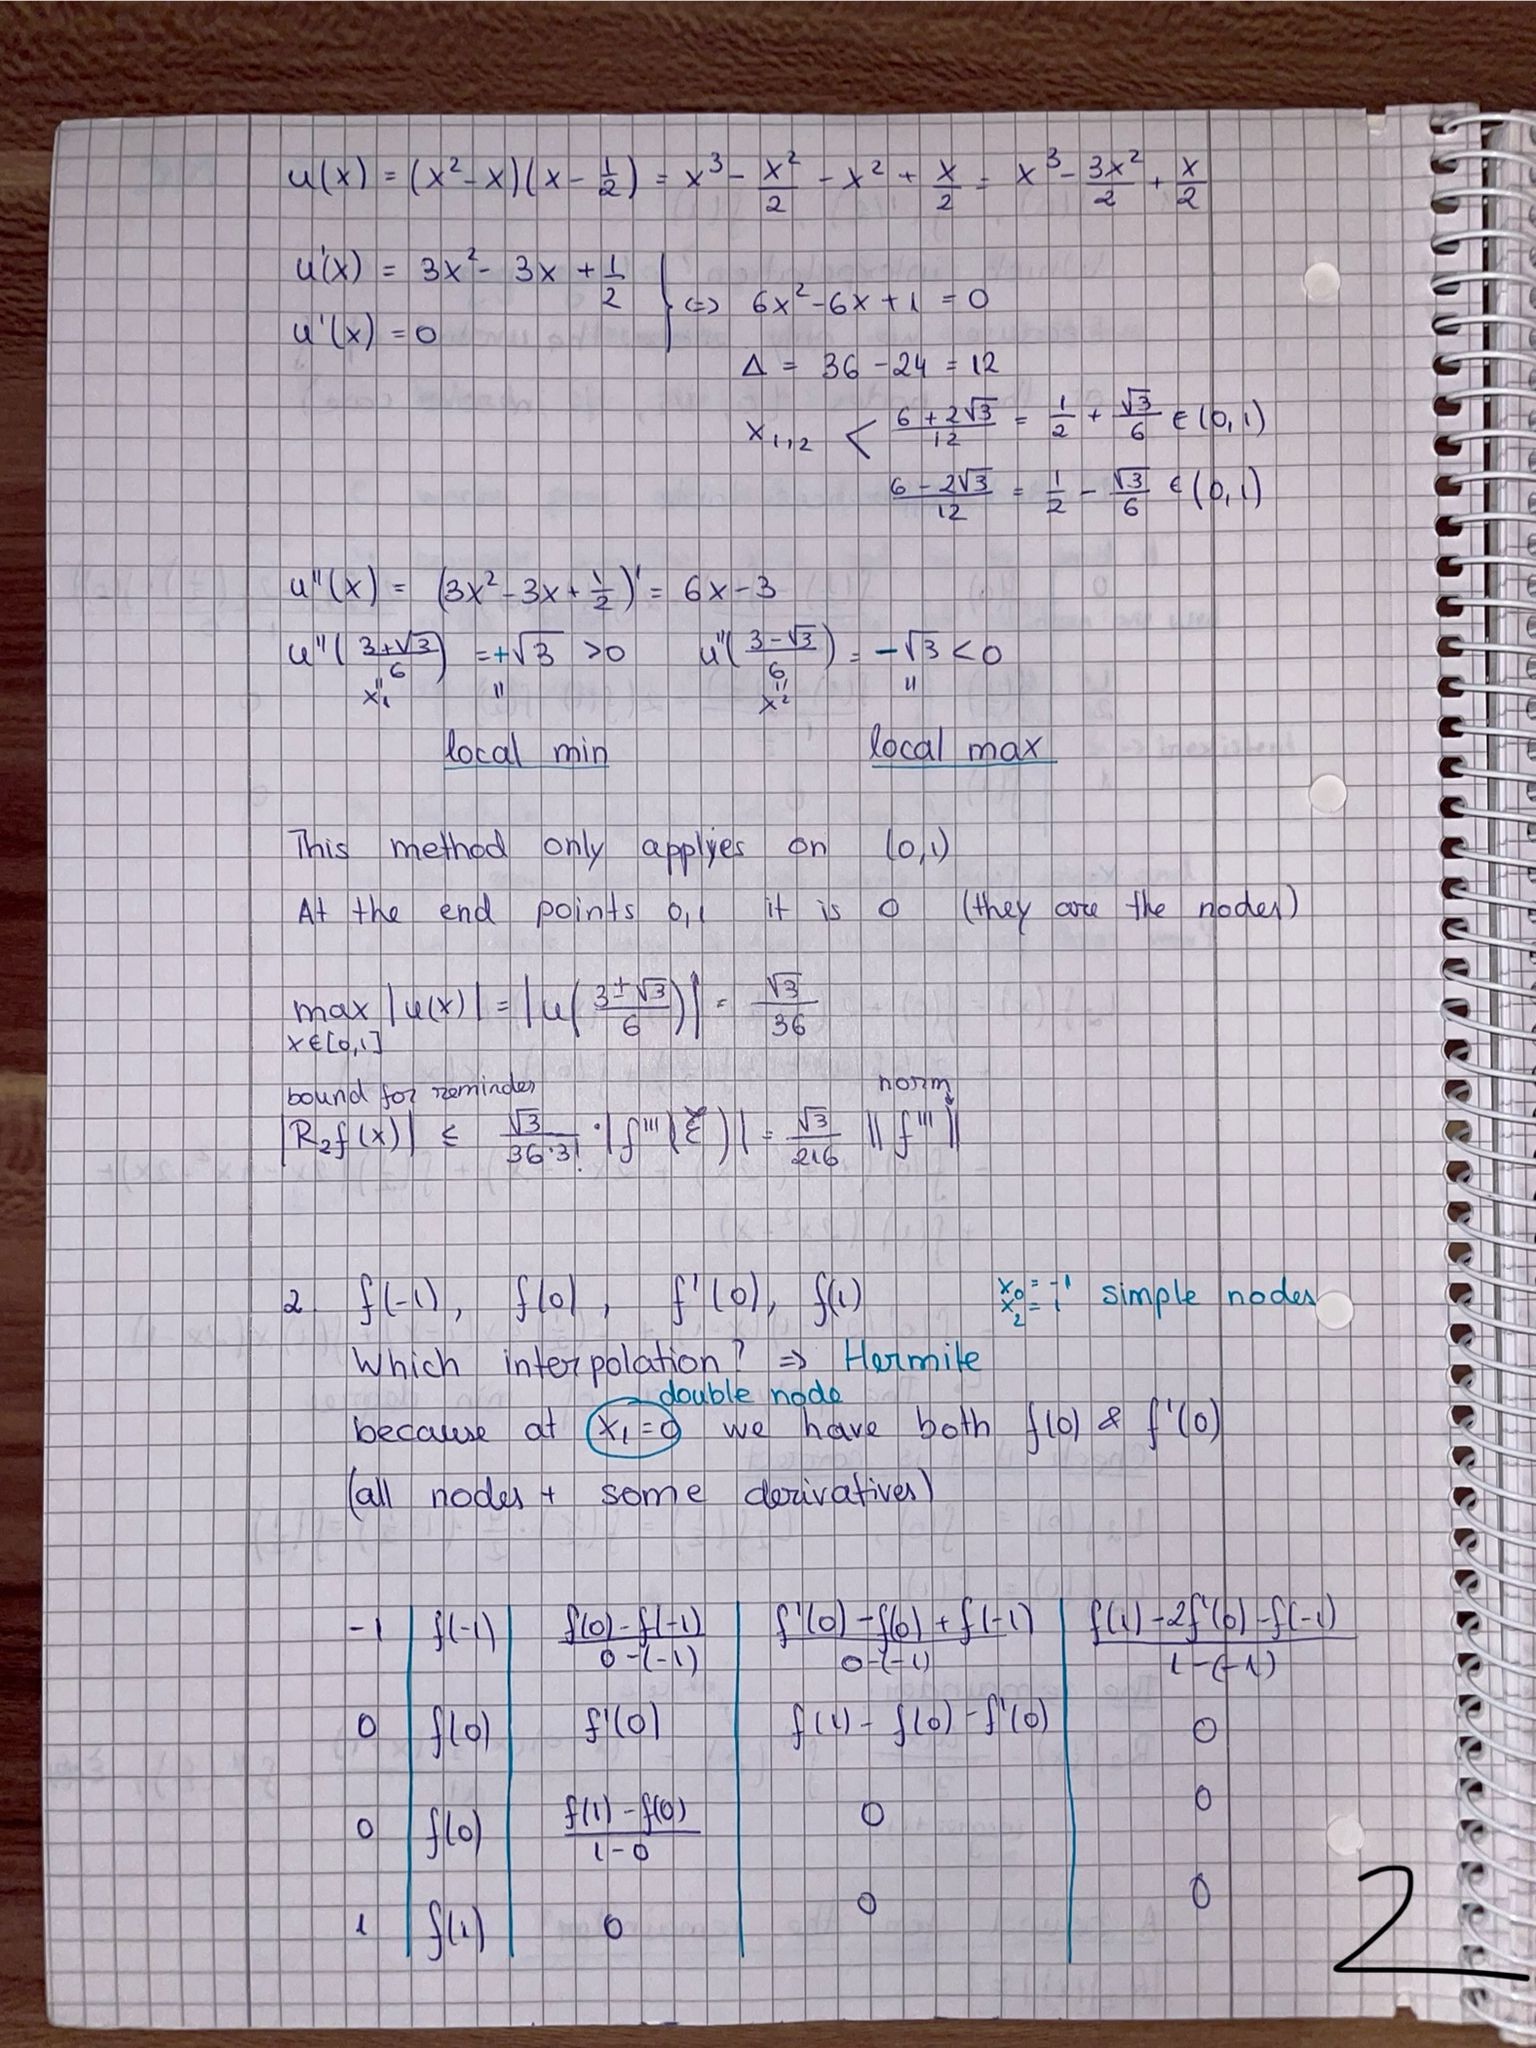 u(x) = (x² - x)(x - 1/2) = x³ - x²/2 - x² + x/2 = x³ - 3x²/2 + x/2
u'(x) = 3x² - 3x + 1/2
u'(x) = 0
<=> 6x² - 6x + 1 = 0
Δ = 36 - 24 = 12
x₁,₂ < (6 + 2√3)/12 = 1/2 + √3/6 ∈ (0,1)
(6 - 2√3)/12 = 1/2 - √3/6 ∈ (0,1)
u''(x) = (3x² - 3x + 1/2)' = 6x - 3
u''((3+√3)/6) = +√3 > 0    u''((3-√3)/6) = -√3 < 0
x₁ " x₂ "
local min    local max
This method only applyes on (0,1)
At the end points 0,1 it is 0 (they are the nodes)
max |u(x)| = |u((3±√3)/6)| = √3/36
x∈[0,1]
bound for reminder    norm
|R₂f(x)| ≤ √3/(36·3!) · |f'''(ξ)| = √3/216 ||f'''||
2. f(-1), f(0), f'(0), f(1)    x₀ = -1 x₂ = 1 simple nodes
Which interpolation? => Hermite
double node
because at x₁=0 we have both f(0) & f'(0)
(all nodes + some derivatives)
-1 | f(-1) | (f(0) - f(-1))/(0-(-1)) | (f'(0) - f(0) + f(-1))/(0-(-1)) | (f(1) - 2f'(0) - f(-1))/(1-(-1))
0 | f(0) | f'(0) | f(1) - f(0) - f'(0) | 0
0 | f(0) | (f(1) - f(0))/(1-0) | 0 | 0
1 | f(1) | 0 | 0 | 0
2